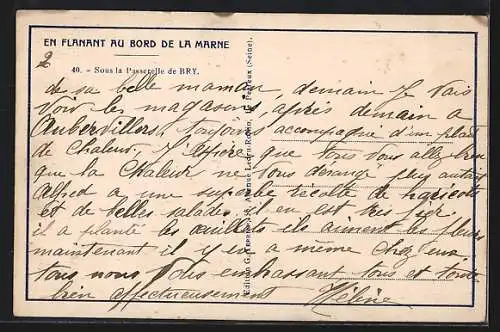 EN FLANANT AU BORD DE LA MARNE
2
40. - Sous la Passerelle de BRY.
de sa belle maman, demain Je vais
voir les magasins, après demain a
Aubervilliers, toujours accompagné d'un plat
de Chaleur. J'espère que tous vous allez bien
que la Chaleur ne vous dérange pas autant
Alfred a une superbe récolte de haricots
et de belles salades, il en est très fier
il a planté les œuillets ils aiment les fleurs
maintenant il y en a même chez eux
tous nous vous embrassant tous et toute
bien affectueusement Hélène
Edition G. 58, Avenue Ledru-Rollin, Le Perreux (Seine).